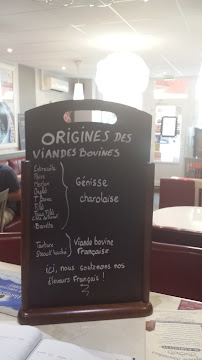 ORIGINES DES
VIANDES BOVINES
Entrecôte
Poire
Merlan
Onglet
T bone
Filet
Faux Filet
Côte de boeuf
Bavette
Génisse
charolaise
Tartare
Steack haché
Viande bovine
Française
ici, nous soutenons nos
éleveurs Français !